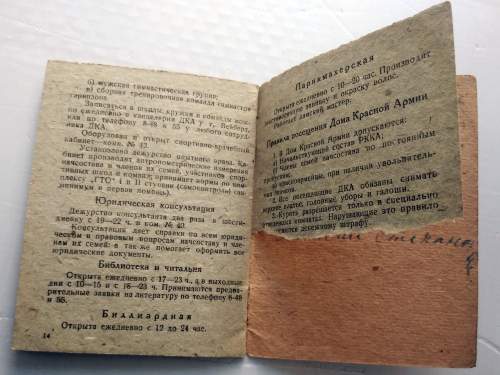 б) мужская гимнастическая группа;
в) сборная тренировочная команда гимнастов
гарнизона.
Записаться в школы, кружки и команды можно
ежедневно в канцелярии ДКА у т. Вейберт,
или по телефону 8-48 и 55 у любого сотруд-
ника ДКА.
Оборудован и открыт спортивно-врачебный
кабинет—комн. № 42.
Установлено дежурство опытного врача. Ка-
бинет производит антропометрические измерения
начсостава и членов их семей, участников спор-
тивных школ и команд, принимает нормы по ком-
плексу „ГТО" I и II ступени (самоконтроль сан-
минимум и первая помощь).
Юридическая консультация
Дежурство консультанта два раза в шести-
дневку с 19—22 ч. в ком. № 40.
Консультация дает справки по всем юриди-
ческим и правовым вопросам начсоставу и чле-
нам их семей; а так же помогает оформить все
юридические документы.
Библиотека и читальня
Открыта ежедневно с 17—23 ч., а в выходные
дни с 10—15 и с 18—23 ч. Принимаются предва-
рительные заявки на литературу по телефону 8-48
и 55.
Биллиардная
Открыта ежедневно с 12 до 24 час.
14
Парикмахерская
Открыта ежедневно с 10—20 час. Производит
завивку и окраску волос.
Работает дамский мастер.
Правила посещения Дома Красной Армии
1. В Дом Красной Армии допускаются:
а) Начальствующий состав РККА;
б) члены семей начсостава по постоянным
в) красноармейцы, при наличии увольнитель-
2. Все посещающие ДКА обязаны снимать
верхнее платье, головные уборы и галоши.
3. Курить разрешается только в специально
отведенных комнатах. Нарушающие это правило
подвергаются денежному штрафу.